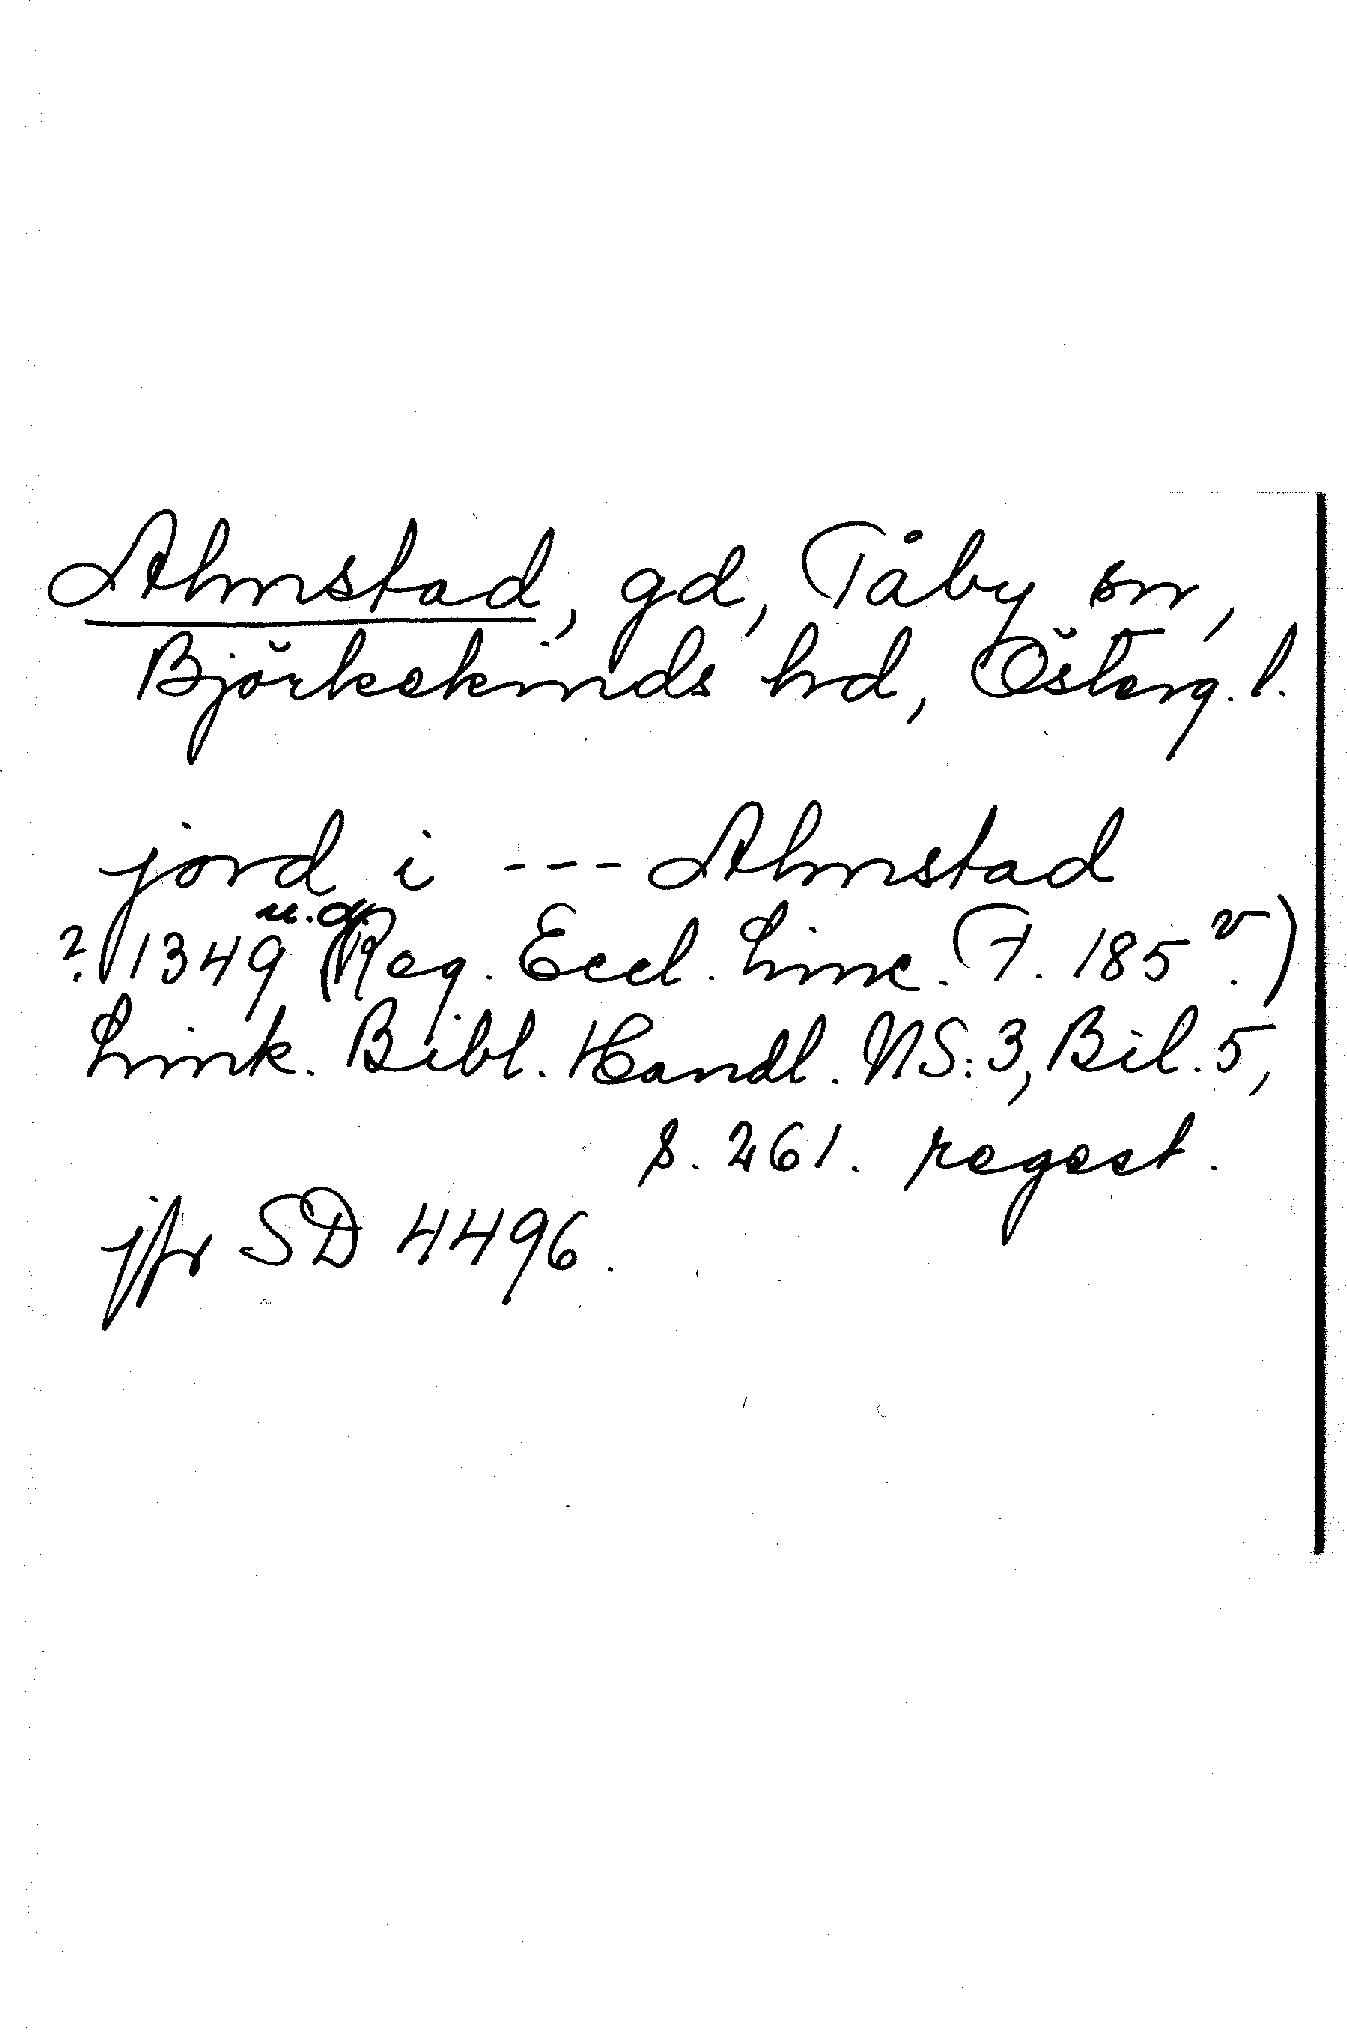 Almstad, gd, Tåby sn,
Björkekinds hd, Österg. l.
jord i --- Almstad
u. å.
? 1349 (Reg. Eccl. Linc. F. 185 v.)
Link. Bibl. Handl. NS: 3, Bil. 5,
s. 261. regest.
jfr SD 4496.